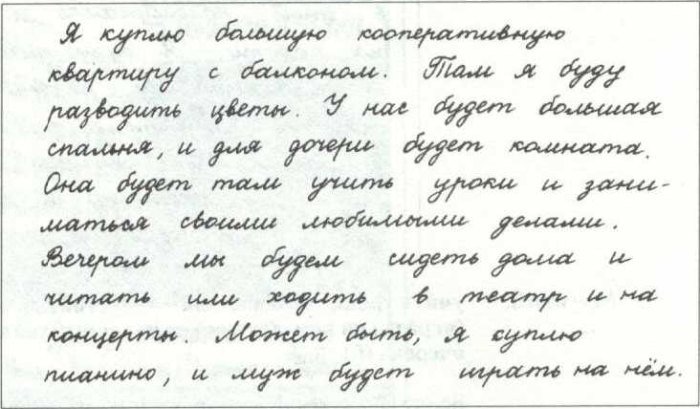 Я куплю большую кооперативную
квартиру с балконом. Там я буду
разводить цветы. У нас будет большая
спальня, и для дочери будет комната.
Она будет там учить уроки и зани-
маться своими любимыми делами.
Вечером мы будем сидеть дома и
читать или ходить в театр и на
концерты. Может быть, я куплю
пианино, и муж будет играть на нём.